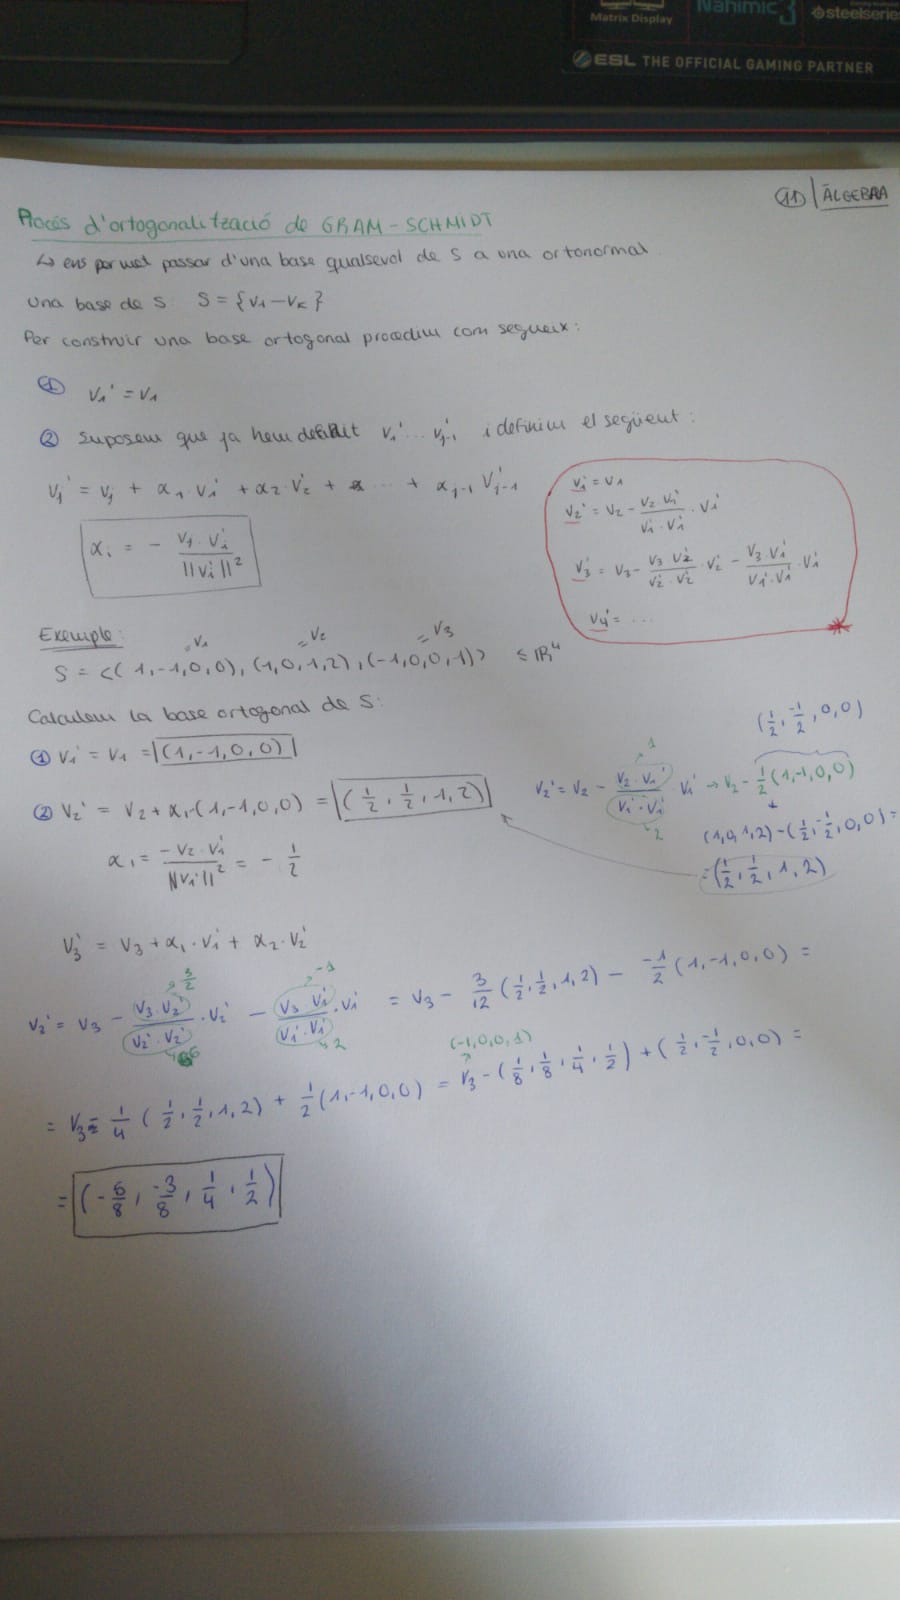 Matrix Display
Nahimic 3
steelserie
ESL THE OFFICIAL GAMING PARTNER
11 | ÀLGEBRA
Procés d'ortogonalització de GRAM-SCHMIDT
↳ ens permet passar d'una base qualsevol de S a una ortonormal
Una base de S: S = {v1 - vk}
Per construir una base ortogonal procedim com segueix:
① v1' = v1
② Suposem que ja hem definit v1' ... vj-1' i definim el següent:
vj' = vj + α1 · v1' + α2 · v2' + ... + αj-1 vj-1'
αi = - vj · vi' / ||vi'||²
v1' = v1
v2' = v2 - (v2 v1' / v1' · v1') · v1'
v3' = v3 - (v3 v2' / v2' · v2') · v2' - (v3 · v1' / v1' · v1') · v1'
v4' = ...
Exemple:
= v1 = v2 = v3
S = <(1,-1,0,0), (1,0,1,2), (-1,0,0,1)> ≤ IR⁴
Calculem la base ortogonal de S:
① v1' = v1 = (1,-1,0,0)
② v2' = v2 + α1 · (1,-1,0,0) = (1/2, 1/2, 1, 2)
α1 = -v2 · v1' / ||v1'||² = - 1/2
(1/2, -1/2, 0, 0)
1
v2' = v2 - (v2 · v1' / v1' · v1') · v1' → v2 - 1/2 (1,-1,0,0)
2
(1,0,1,2) - (1/2, -1/2, 0, 0) =
= (1/2, 1/2, 1, 2)
v3' = v3 + α1 · v1' + α2 · v2'
3/2 -1
v2' = v3 - (v3 · v2' / v2' · v2') · v2' - (v3 · v1' / v1' · v1') · v1' = v3 - 3/12 (1/2, 1/2, 1, 2) - -1/2 (1,-1,0,0) =
6 2
(-1,0,0,1)
= v3 - 1/4 (1/2, 1/2, 1, 2) + 1/2 (1,-1,0,0) = v3 - (1/8, 1/8, 1/4, 1/2) + (1/2, -1/2, 0, 0) =
= (-5/8, -3/8, 1/4, 1/2)